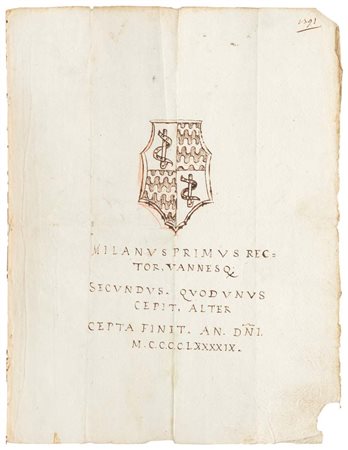 1391
MILANVS PRIMVS REC=
TOR. VANNESQ
SECVNDVS. QVODVNVS
CEPIT. ALTER
CEPTA FINIT. AN. DÑI.
M.C.C.C.C.LXXXXIX.